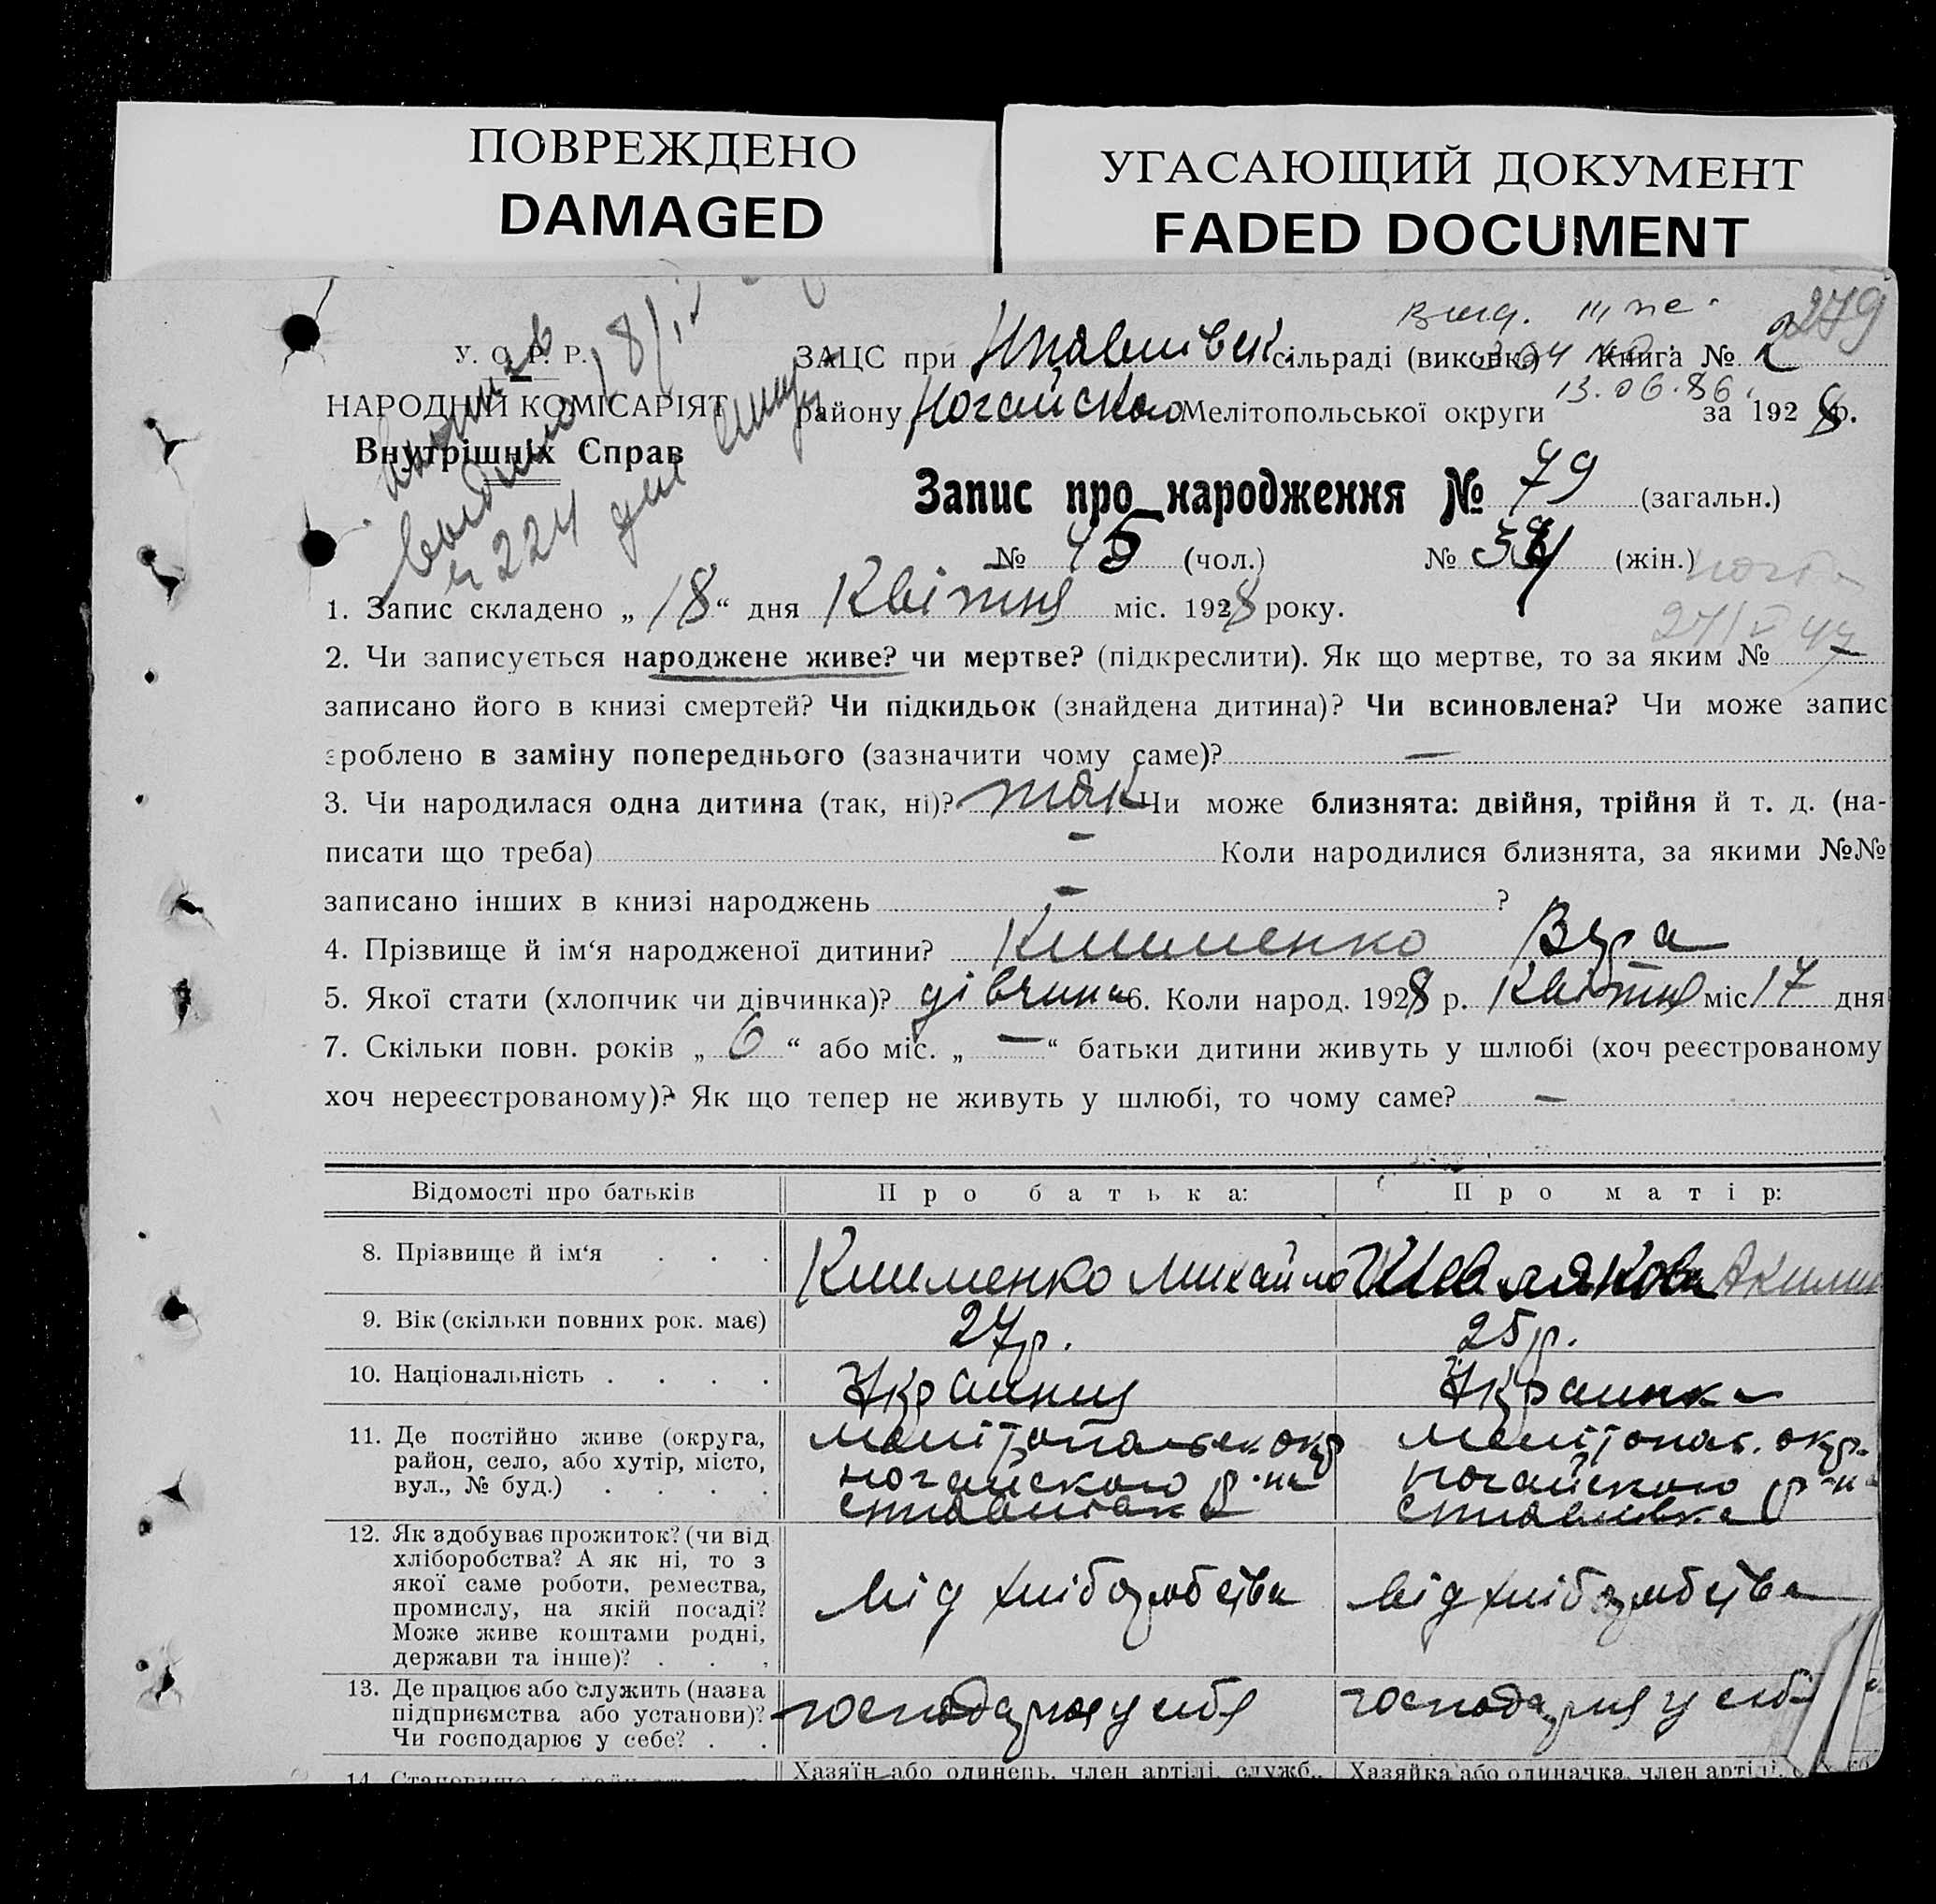 ПОВРЕЖДЕНО
DAMAGED
УГАСАЮЩИЙ ДОКУМЕНТ
FADED DOCUMENT
279
У. С. Р. Р.
НАРОДНІЙ КОМІСАРІЯТ
Внутрішніх Справ
ЗАЦС при сільраді (виковка) Книга № 2
району Ногайского Мелітопольської округи за 1928 р.
13.06.86.
Запис про народження № 79 (загальн.)
№ 45 (чол.) № 34 (жін.)
1. Запис складено „18“ дня Квітня міс. 1928 року.
2. Чи записується народжене живе? чи мертве? (підкреслити). Як що мертве, то за яким №
записано його в книзі смертей? Чи підкидьок (знайдена дитина)? Чи всиновлена? Чи може запис
зроблено в заміну попереднього (зазначити чому саме)? —
3. Чи народилася одна дитина (так, ні)? так Чи може близнята: двійня, трійня й т. д. (на-
писати що треба) — Коли народилися близнята, за якими №№
записано інших в книзі народжень — ?
4. Прізвище й ім‘я народженої дитини? Клименко Вера
5. Якої стати (хлопчик чи дівчинка)? дівчина 6. Коли народ. 1928 р. Квітня міс 17 дня
7. Скільки повн. років „6“ або міс. „—“ батьки дитини живуть у шлюбі (хоч реєстрованому
хоч нереєстрованому)? Як що тепер не живуть у шлюбі, то чому саме? —
Відомості про батьків Про батька: Про матір:
8. Прізвище й ім‘я . . . Клименко Михайло Шевлякова
9. Вік (скільки повних рок. має) 27 р. 25 р.
10. Національність . . . . Українця Українка
11. Де постійно живе (округа,
район, село, або хутір, місто,
вул., № буд.) . . . .
Мелітопольск. окр
Ногайского р-на
Мелітопол. окр.
Ногайского р-н
12. Як здобуває прожиток? (чи від
хліборобства? А як ні, то з
якої саме роботи, ремества,
промислу, на якій посаді?
Може живе коштами родні,
держави та інше)? . . .
від хліборобства
від хліборобства
13. Де працює або служить (назва
підприємства або установи)?
Чи господарює у себе? . .
господарює у себя
господарює у себя
14. Становище
Хазяїн або одинець, член артілі, служб.,
Хазяйка або одиначка, член артілі,